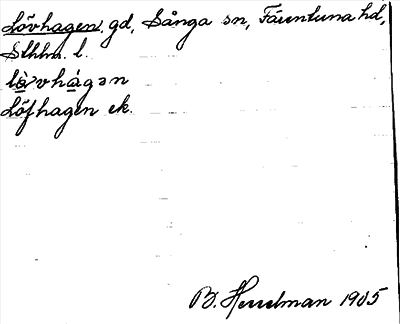 Lövhagen, gd, Sånga sn, Färentuna hd,
Sthlm. l.
lǜvhágən
Löfhagen ek.
B. Hesselman 1905